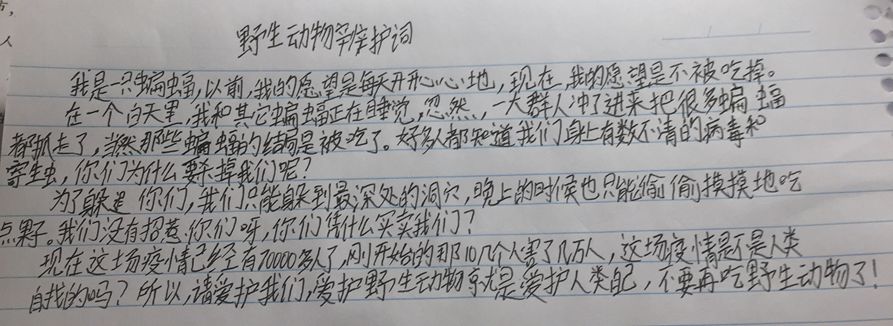 野生动物辩护词
我是一只蝙蝠，以前，我的愿望是每天开开心心地，现在，我的愿望是不被吃掉。
在一个白天里，我和其它蝙蝠正在睡觉，忽然，一大群人冲了进来把很多蝙蝠
都抓走了，当然那些蝙蝠的结局是被吃了。好多人都知道我们身上有数不清的病毒和
寄生虫，你们为什么要杀掉我们呢？
为了躲避你们，我们只能躲到最深处的洞穴，晚上的时候也只能偷偷摸摸地吃
点果子。我们没有招惹你们呀，你们凭什么买卖我们？
现在这场疫情已经有70000多人了，刚开始的那10几个人害了几万人，这场疫情是不是人类
自找的吗？所以，请爱护我们，爱护野生动物就是爱护人类自己，不要再吃野生动物了！